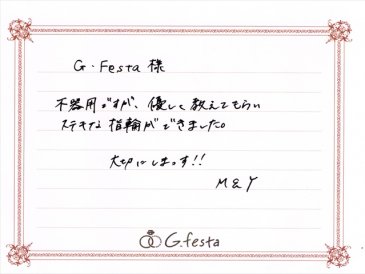 G.Festa 様
不器用ですが、優しく教えてもらい
ステキな指輪ができました。
大切にします!!
M&Y
G.festa